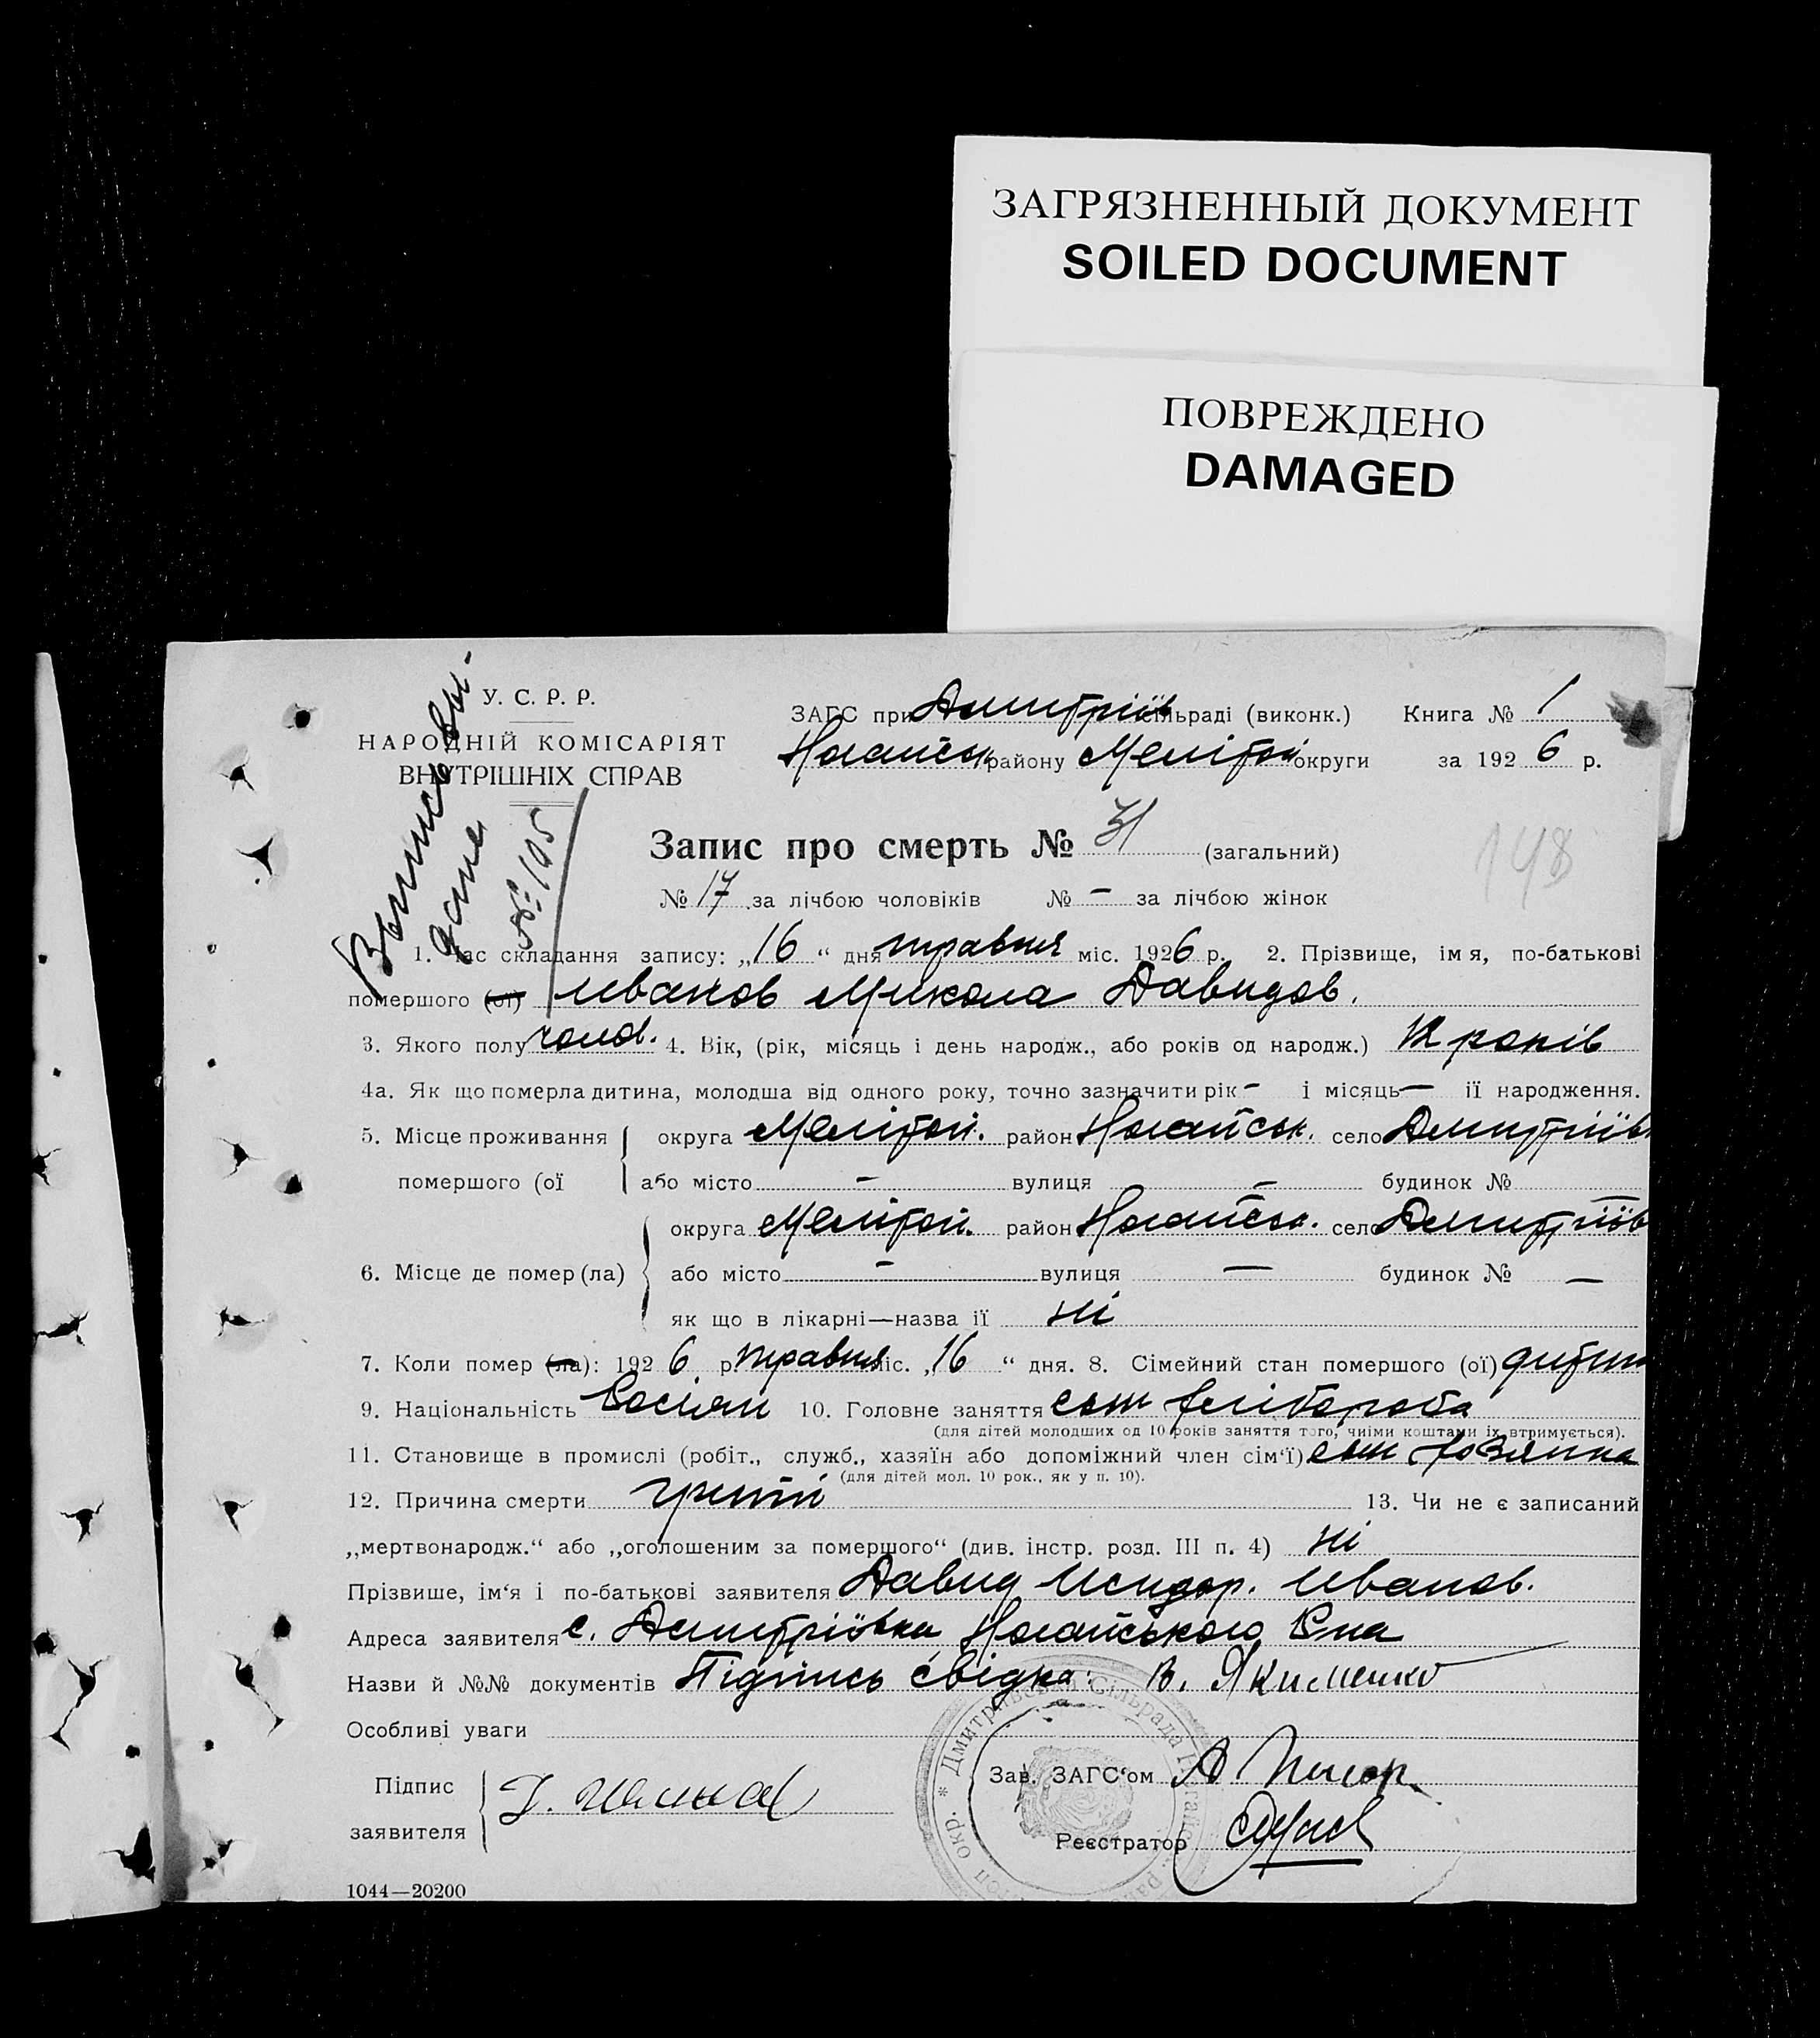 ЗАГРЯЗНЕННЫЙ ДОКУМЕНТ
SOILED DOCUMENT
ПОВРЕЖДЕНО
DAMAGED
У. С. Р. Р.
НАРОДНІЙ КОМІСАРІЯТ
ВНУТРІШНІХ СПРАВ
ЗАГС при Дмитріїв сільраді (виконк.) Книга № 1
Ногайськ району Мелітоп округи за 1926 р.
№ 195
Запис про смерть № 31 (загальний)
148
№ 17 за лічбою чоловіків № — за лічбою жінок
1. Час складання запису: „16“ дня травня міс. 1926 р. 2. Прізвище, ім я, по-батькові
помершого (ої) Иванов Микола Давидов.
3. Якого полу чолов. 4. Вік, (рік, місяць і день народж., або років од народж.) 12 років
4а. Як що померла дитина, молодша від одного року, точно зазначити рік — і місяць — ії народження.
5. Місце проживання округа Мелітоп. район Ногайськ. село Дмитріїв
помершого (ої або місто — вулиця — будинок № —
округа Мелітоп. район Ногайськ. село Дмитріїв
6. Місце де помер (ла) або місто — вулиця — будинок № —
як що в лікарні—назва ії ні
7. Коли помер (ла): 1926 р. травня міс. „16“ дня. 8. Сімейний стан помершого (ої) дитин
9. Національність Росіян 10. Головне заняття сын хлібороба
(для дітей молодших од 10 років заняття того, чиїми коштами їх втримується).
11. Становище в промислі (робіт., служб., хазяїн або допоміжний член сім‘ї) сын хозяина
(для дітей мол. 10 рок., як у п. 10).
12. Причина смерти грипп 13. Чи не є записаний
„мертвонародж.“ або „оголошеним за помершого“ (див. інстр. розд. III п. 4) ні
Прізвише, ім‘я і по-батькові заявителя Давид Исидор. Иванов.
Адреса заявителя с. Дмитріївка Ногайського Р-на
Назви й №№ документів Підпись свідка: В. Якименко
Особливі уваги
Підпис
заявителя
Зав. ЗАГС‘ом
Реєстратор
1044—20200